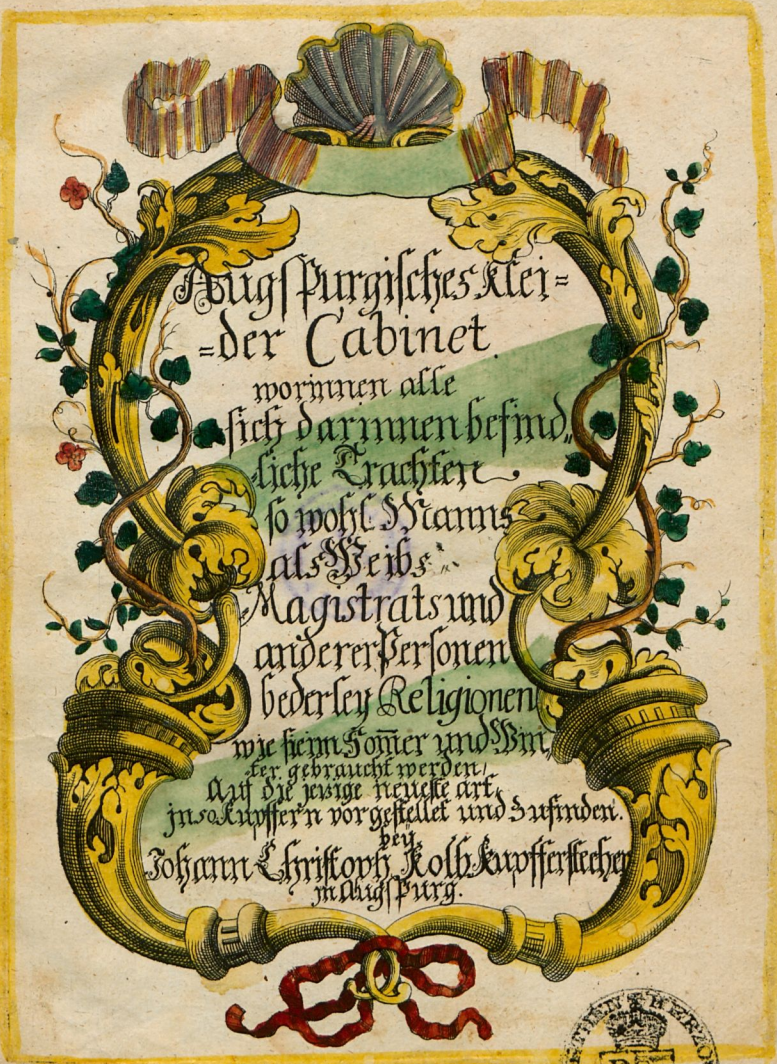 Augspurgisches Klei=
=der Cabinet.
worinnen alle
sich darinnen befind„
liche Trachten
so wohl Manns
als Weibs
Magistrats und
anderer Personen
bederley Religionen
wie sie im Som̅er und Win„
ter gebraucht werden,
Auf die jezige neueste art,
in 50 Kupffern vorgestellet und Zufinden.
bey
Johann Christoph Kolb Kupfferstecher
in Augspurg.